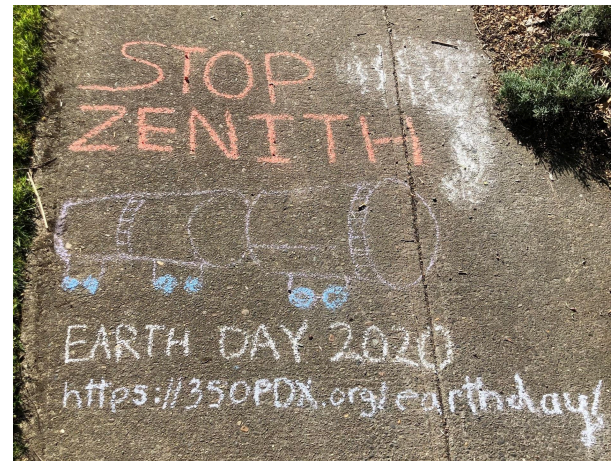 STOP
ZENITH
EARTH DAY 2020
https://350PDX.org/earthday/